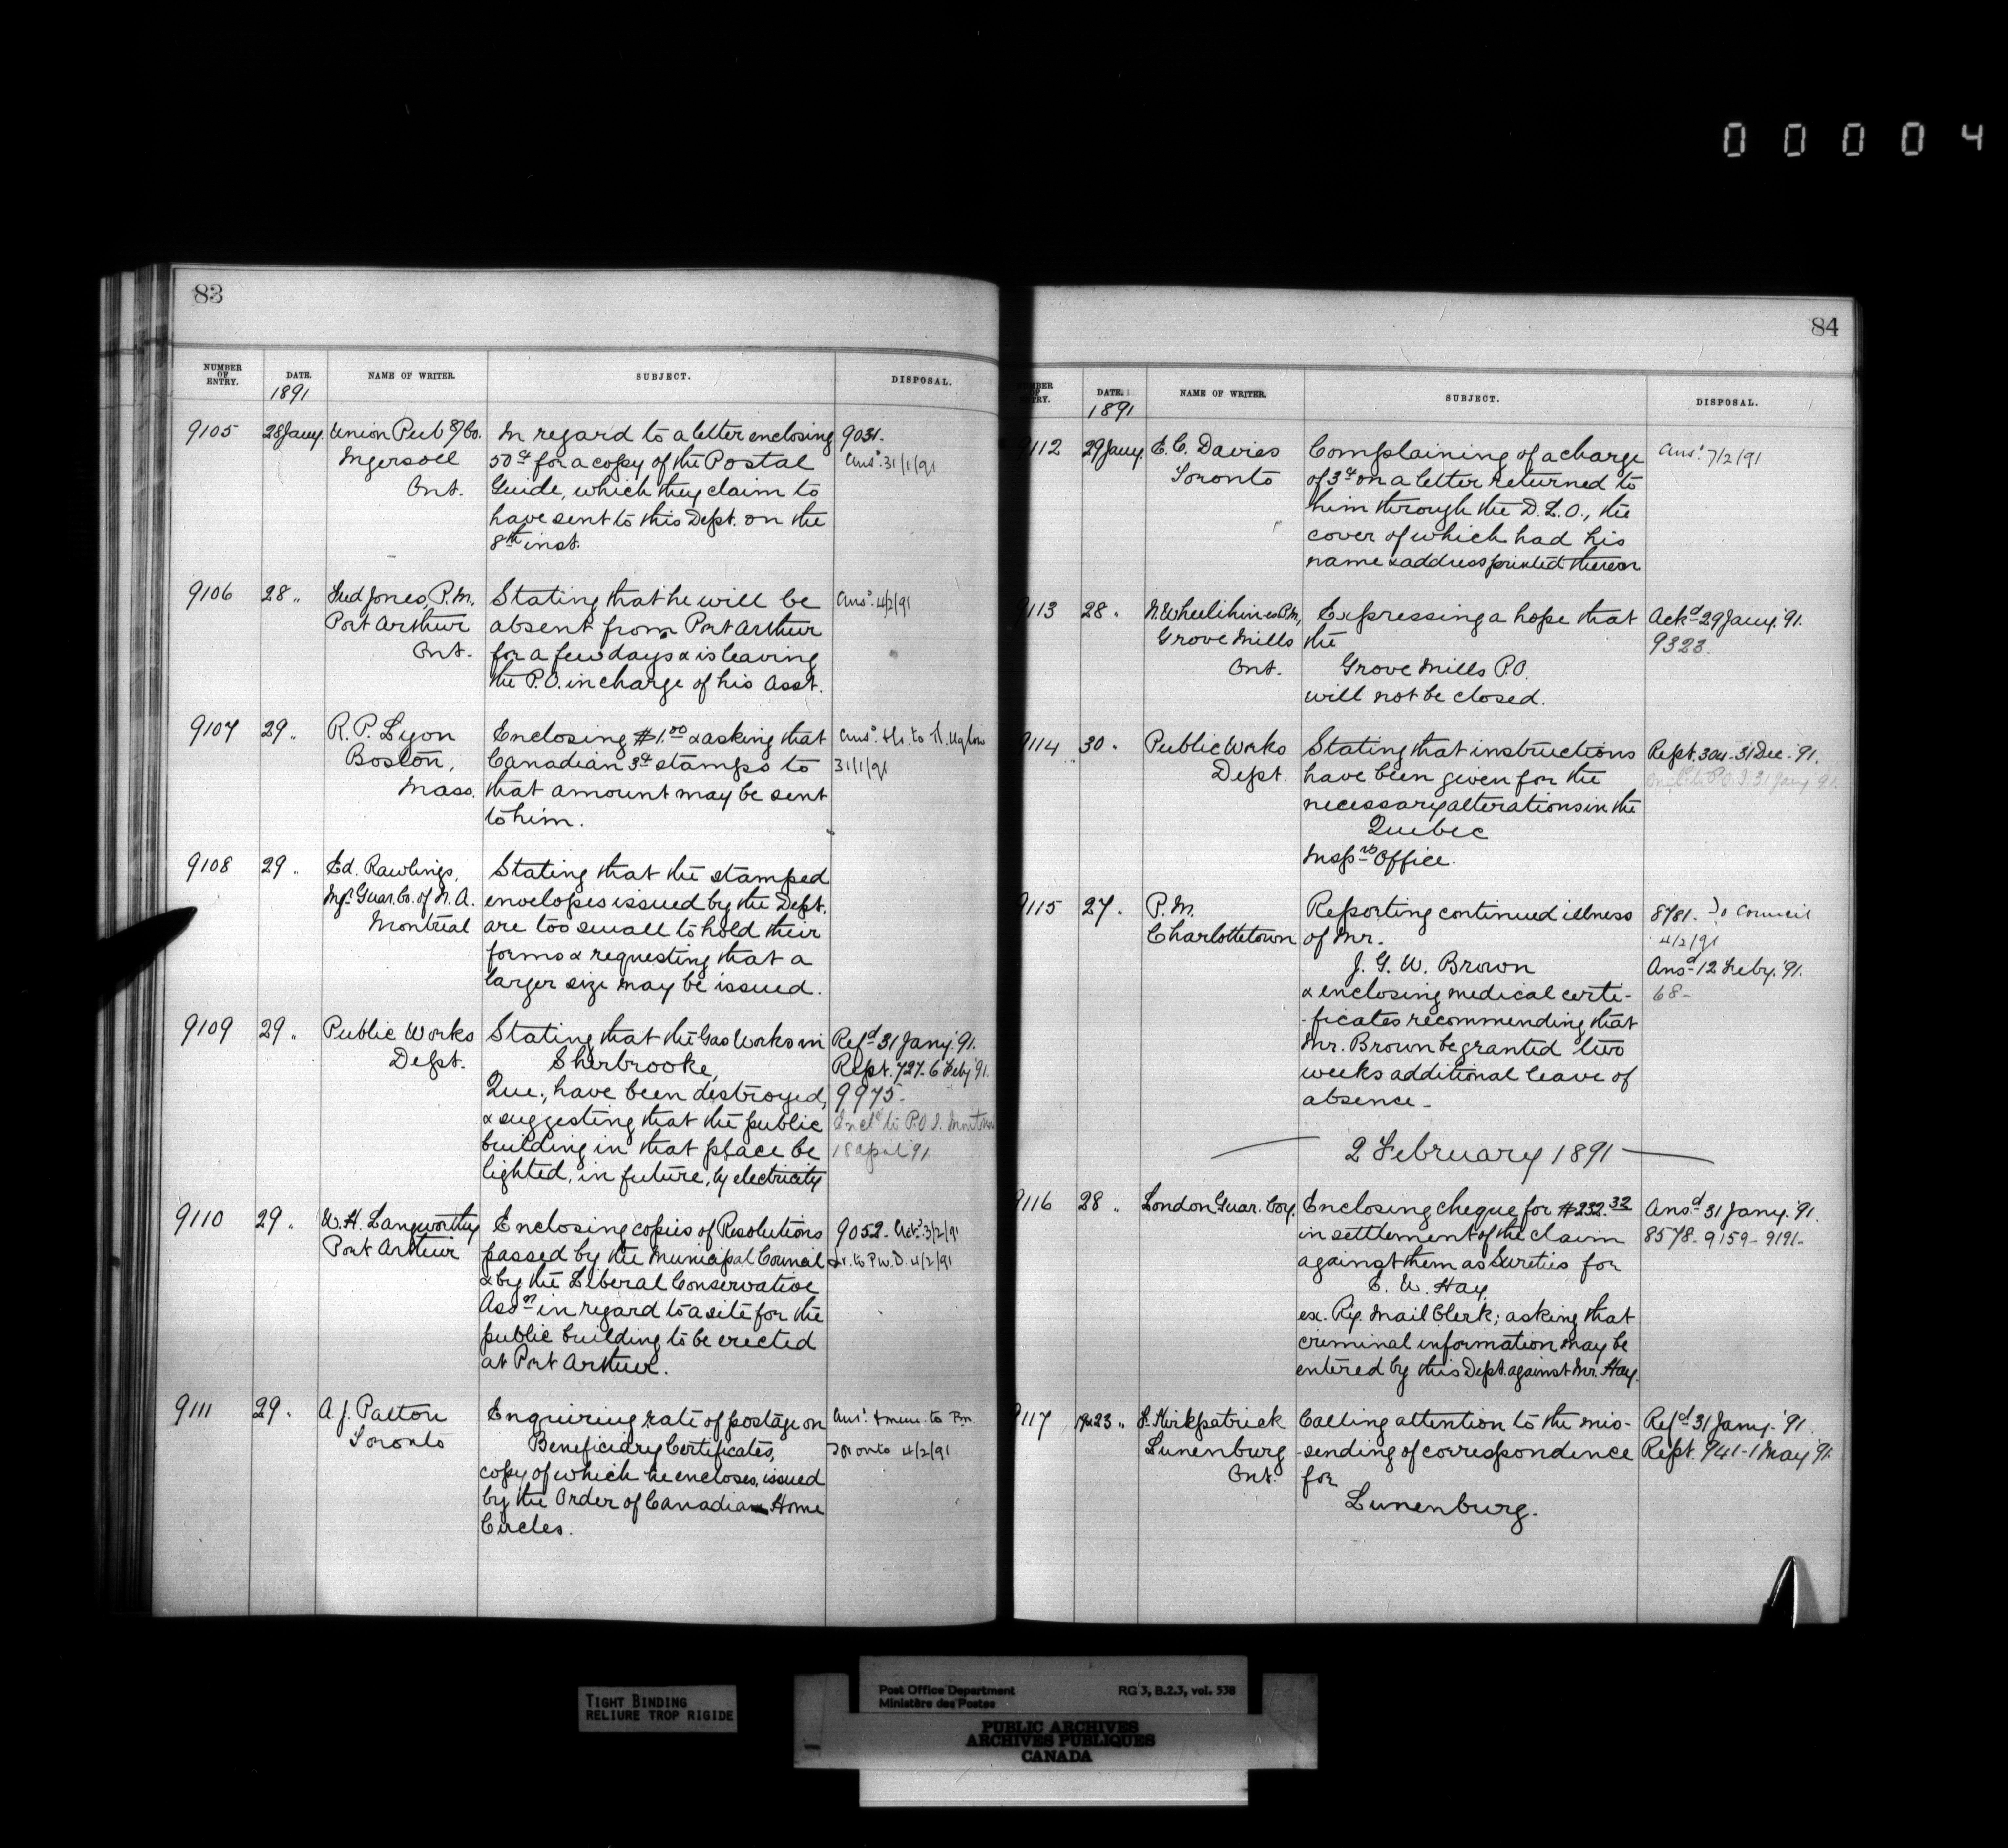 00004
83
NUMBER OF ENTRY. DATE. NAME OF WRITER. SUBJECT. DISPOSAL.
1891
9105 28 Jany. Union Pub g Co. In regard to a letter enclosing 9031.
Ingersoll 50 cts for a copy of the Postal Ansd. 31/1/91
Ont. Guide, which they claim to
have sent to this Dept. on the
8th inst.
9106 28 " Fred Jones, P.M., Stating that he will be Ansd. 4/2/91
Port Arthur absent from Port Arthur
Ont. for a few days & is leaving
the P.O. in charge of his Asst.
9107 29 " R. P. Lyon Enclosing $1.00 & asking that Ansd. to
Boston, Canadian 3ct stamps to 31/1/91
Mass. that amount may be sent
to him.
9108 29 " Ed. Rawlings, Stating that the stamped
Mgr. Guar. Co. of N. A. envelopes issued by the Dept.
Montreal are too small to hold their
forms & requesting that a
larger size may be issued.
9109 29 " Public Works Stating that the Gas Works in Refd 31 Jany. '91.
Dept. Sherbrooke, Rept. 727. 6 Feby '91.
Que., have been destroyed, 9975.
& suggesting that the public Encld to P.O.I. Montreal
building in that place be 18 April 91
lighted, in future, by electricity
9110 29 " W. H. Langworthy Enclosing copies of Resolutions 9052. Ackd. 3/2/91
Port Arthur passed by the Municipal Council Lr. to P.W.D. 4/2/91
& by the Liberal Conservative
Assn in regard to a site for the
public building to be erected
at Port Arthur.
9111 29 " A. J. Patton Enquiring rate of postage on Ansd. & mem. to P.M.
Toronto Beneficiary Certificates, Toronto 4/2/91
copy of which he encloses, issued
by the Order of Canadian Home
Circles.
84
NUMBER OF ENTRY. DATE. NAME OF WRITER. SUBJECT. DISPOSAL.
1891
9112 29 Jany. E. C. Davies Complaining of a charge Ansd. 7/2/91
Toronto of 3 cts on a letter returned to
him through the D. L. O., the
cover of which had his
name & address printed thereon
9113 28 " N. Wheelihine P.M., Expressing a hope that Ackd 29 Jany. '91.
Grove Mills the 9323.
Ont. Grove Mills P.O.
will not be closed.
9114 30 " Public Works Stating that instructions Rept. 304 - 31 Dec. '91.
Dept. have been given for the Encld to P.O.I. 31 Jany '91.
necessary alterations in the
Quebec
Insprs Office.
9115 27 " P.M. Reporting continued illness 8781. To Council
Charlottetown of Mr. 4/2/91
J. G. W. Brown Ansd 12 Feby. '91.
& enclosing medical certi- 68-
-ficates recommending that
Mr. Brown be granted two
weeks additional leave of
absence -
2 February 1891
9116 28 " London Guar. Coy. Enclosing cheque for $232.32 Ansd 31 Jany. '91.
in settlement of the claim 8578 - 9159 - 9191 -
against them as Sureties for
C. W. Hay,
ex. Ry. Mail Clerk; asking that
criminal information may be
entered by this Dept. against Mr. Hay.
9117 23 " Kirkpatrick Calling attention to the mis- Refd 31 Jany. '91.
Lunenburg -sending of correspondence Rept. 941 - 1 May '91.
Ont. for
Lunenburg.
TIGHT BINDING
RELIURE TROP RIGIDE
Post Office Department RG 3, B.2.3, vol. 538
Ministère des Postes
PUBLIC ARCHIVES
ARCHIVES PUBLIQUES
CANADA